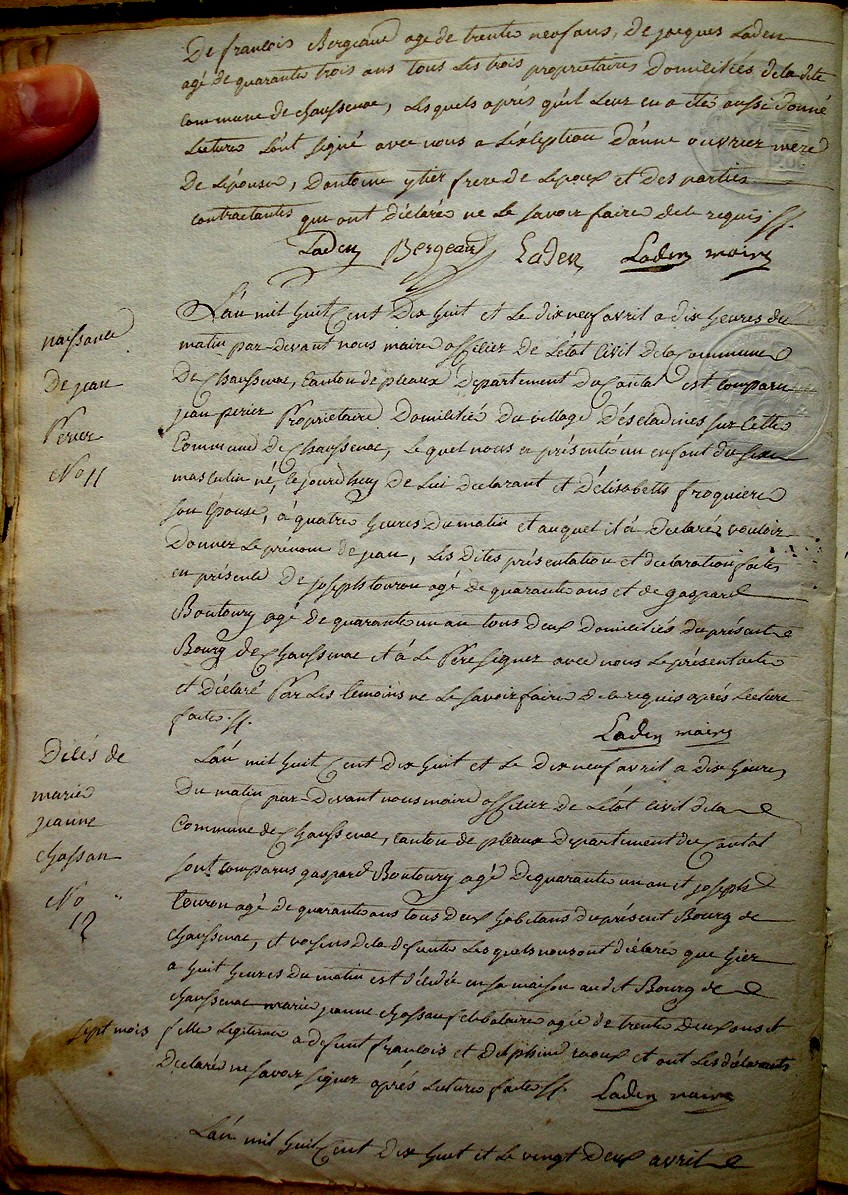 De francois Bergeaud agé de trente neuf ans, De jacques Laden
agé de quarante trois ans tous Les trois proprietaires Domiciliées de la dite
commune de chaussenac, Lesquels aprés qu'il Leur en a été aussi donné
Lecture L'ont signé avec nous a L'éxéption D'anne ouvrier mere
De L'épouse, D'antoine ytier frere de L'epoux et des parties
contractantes qui ont déclaré ne Le savoir faire de ce requis //.
Laden Bergeaud Laden Laden maire
naissance
De jean
Perier
No 11
L'an mil huit Cent Dix huit et Le dix neuf avril a dix heures du
matin par-devant nous maire officier De L'état Civil de la Commune
De Chaussenac, Canton de pleaux Departement du Cantal est comparu
jean perier Proprietaire Domicilié Du village D'éscladines sur Cette
Commune De Chaussenac, Le quel nous a présenté un enfant du sexe
masculin né, Cejourd'huy De Lui declarant et D'élisabeth froquiere
son épouse, à quatre heures Du matin et auquel il à Declaré vouloir
Donner Le prénom De jean, Les Dites présentation et declaration faites
en présence De joseph touron agé De quarante ans et de gaspard
Boutoury agé De quarante un an tous Deux Domiciliés Du présent
Bourg De Chaussenac et à Le Pere signer avec nous Le présent acte
et Déclaré Par Les temoins ne Le savoir faire De ce requis aprés Lecture
faite //.
Laden maire
Décés de
marie
jeanne
chassan
No
12
L'an mil huit Cent Dix huit et Le Dix neuf avril a Dix heures
Du matin par-Devant nous maire officier De L'état Civil de la
Commune de Chaussenac, Canton de pleaux Departement du Cantal
sont comparus gaspard Boutoury agé De quarante un an et joseph
touron agé De quarante ans tous Deux habitans du présent Bourg de
chaussenac, et voisins de la défunte Les quels nous ont déclaré que hier
a huit heures Du matin est décédée en sa maison au dit Bourg de
chaussenac marie jeanne chassan celibataire agée De trente Deux ans et
sept mois fille Legitime a defunt francois et Delphine raoux et ont Les déclarants
Déclaré ne savoir signer aprés Lecture faite //. Laden maire
L'an mil huit Cent Dix huit et Le vingt Deux avril